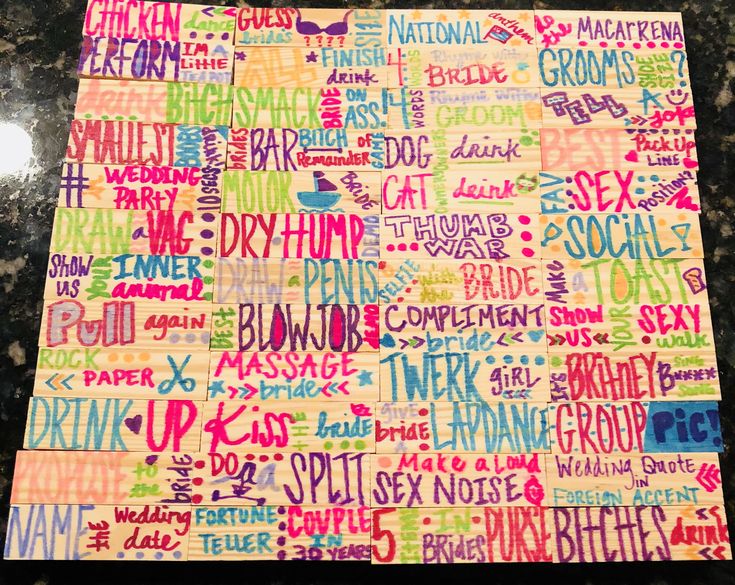 CHICKEN dance
GUESS bride's ???? SIZE
NATIONAL anthem
do the MACARRENA
PERFORM I'M a Little TEAPOT
ALL FINISH drink
4 WORDS Rhyme with BRIDE
GROOMS SHOE SIZE?
drink BITCH
SMACK BRIDE ON ASS.
4 WORDS Rhyme With GROOM
TELL A joke
SMALLEST BOOBS drink
BRIDES BAR BITCH for Remainder of GAME
DOG OWNERS drink
BEST Pick Up LINE
# WEDDING PARTY 10 SECS
MOTOR BRIDE
CAT OWNERS drink
FAV SEX POSITION?
DRAW a VAG
DRY HUMP DEMO
THUMB WAR
SOCIAL
SHOW US YOUR INNER animal
DRAW a PENIS
SELFIE with the BRIDE
Make a TOAST
Pull again
BEST BLOWJOB DEMO
COMPLIMENT bride
Show US YOUR SEXY walk
ROCK PAPER
MASSAGE bride
TWERK giRL
IT'S BRITNEY B****
DRINK UP
KISS THE bride
give bride LAPDANCE
GROUP PIC!
to the bride
DO a SPLIT
Make a Loud SEX NOISE
Wedding Quote in FOREIGN ACCENT
NAME the Wedding date
FORTUNE TELLER: COUPLE IN 30 YEARS
5 ITEMS IN BRIDES PURSE
BITCHES drink